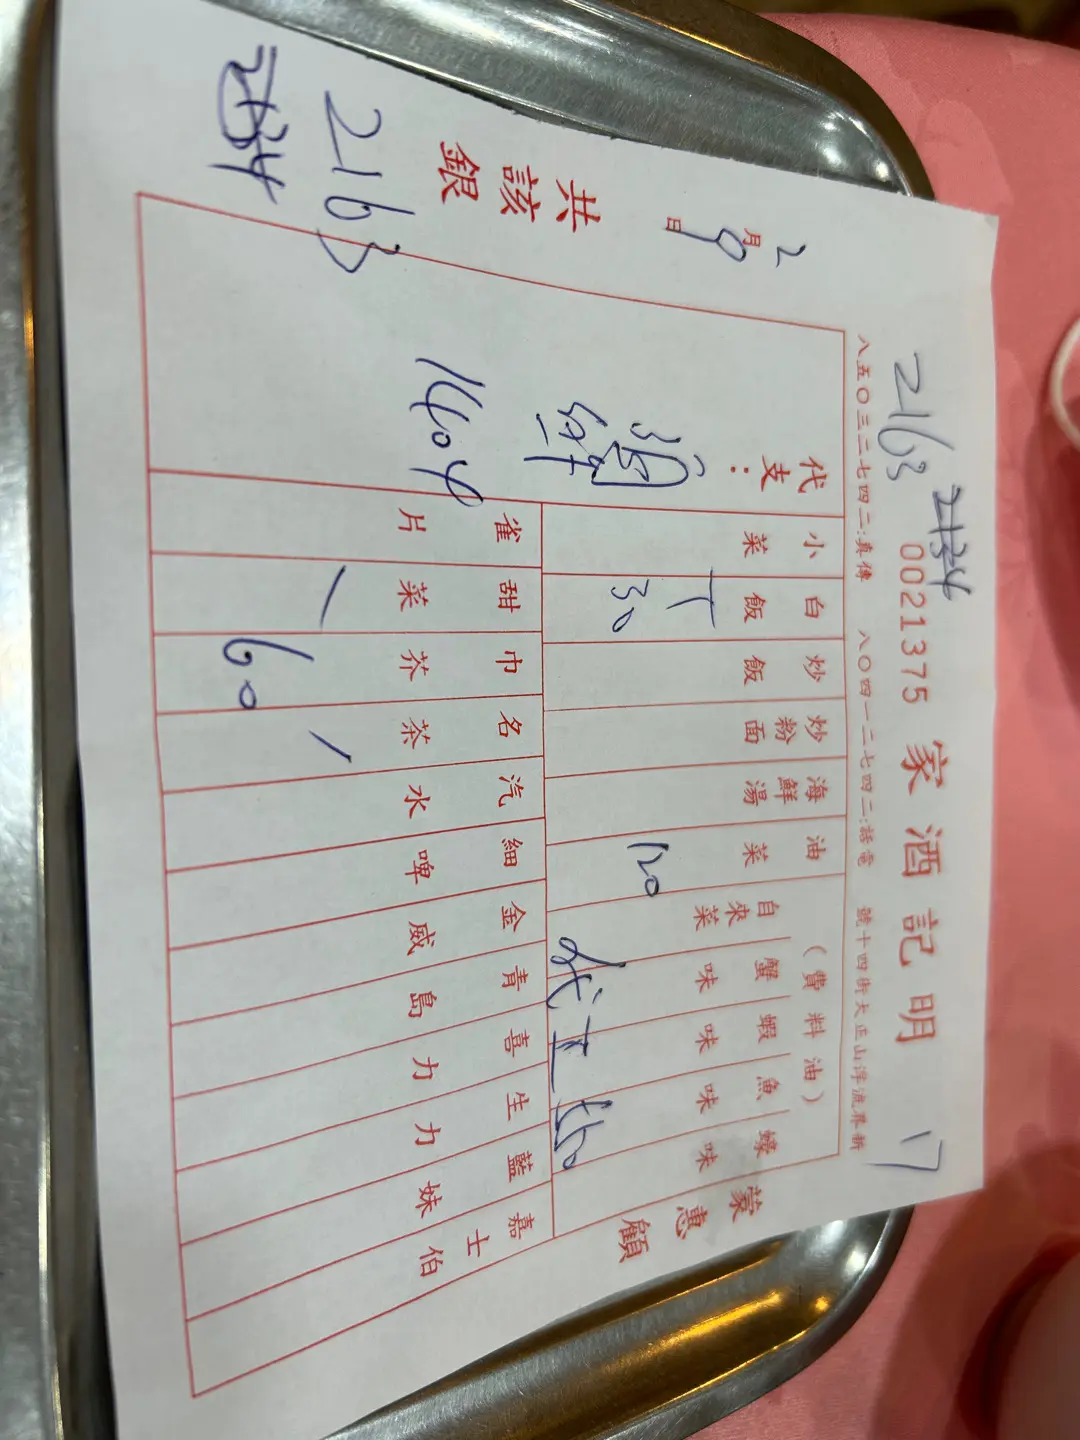 2163 2134
0021375 家酒記明 17
八五〇三二七四二:真傳 八〇四一二七四二:話電 號十四街大正山浮流界新
2月9日
共該銀
2163
2134
代支:
1404
小菜
白飯
30
炒飯
炒粉面
海鮮湯
油菜
120
(費料油)
自來菜
蟹味
蝦味
魚味
蠔味
蒙惠顧
雀片
甜菜
巾芥
60
名茶
汽水
細啤
金威
青島
喜力
生力
藍妹
嘉士伯